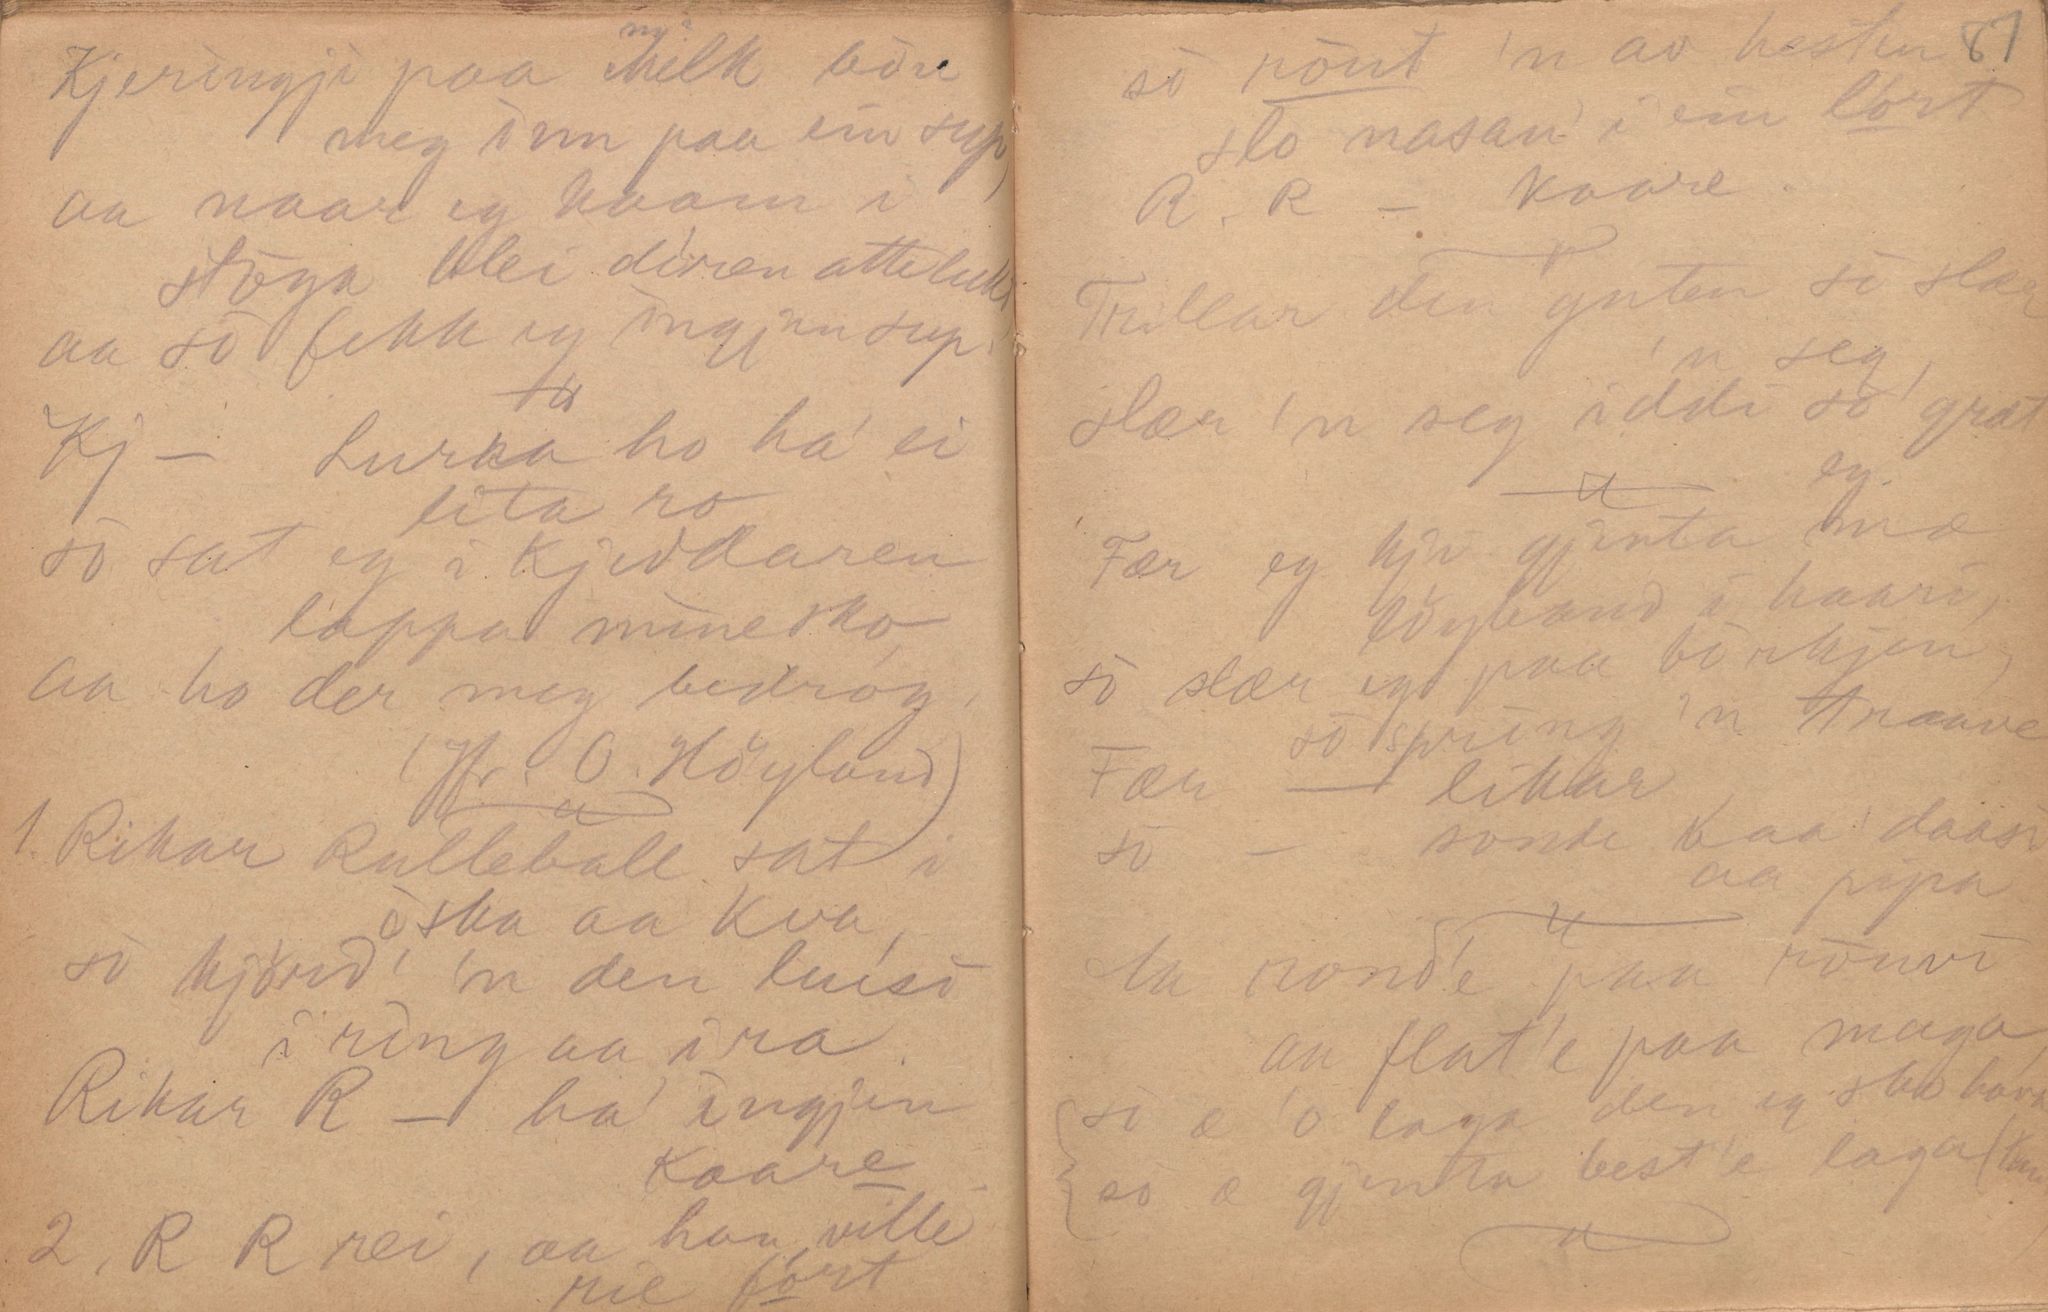 Kjeringji paa Melk bòu
meg inn paa ein sup,
aa naar eg kaam i
stòga blei dòren attelukt
aa sò fekk eg ingjen sup.
Kj — Lurka ho ha' ei
lita ro
sò sat eg i Kjeddaren
lappa mine sko,
aa ho der meg bedròg.
(Hr. O. Höyland)
1. Rikar Rulleball sat i
òska aa kva,
sò kjörd' 'n den luisò
i ring aa i ra.
Rikar R — ha' ingjen
Kaare
2, R R rei, aa han ville
rie fórt
87
sò rònt 'n av hesten
slo nasan' i ein lórt
R. R — Kaare.
Trillar den guten sò slær
'n seg,
slær 'n seg iddi sò græt
eg.
Fær eg kji gjenta mæ
töyband i haari,
sò slær eg paa börkjen,
sò spring 'n traave
Fær — likar
sò — sonde baa' daasi
aa pipa
rond'e paa rònvi
aa flat'e paa maga,
sò æ 'o laga den eg ska hava
sò æ gjenta best'e laga